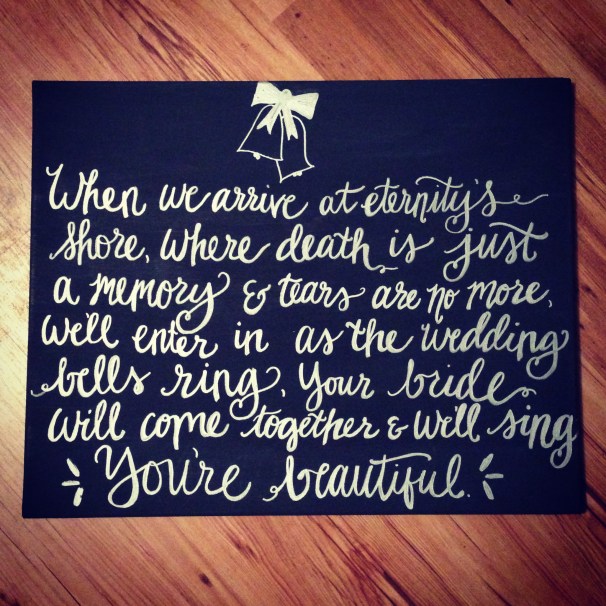 When we arrive at eternity's
shore, where death is just
a memory & tears are no more,
we'll enter in as the wedding
bells ring. Your bride
will come together & we'll sing
You're beautiful.